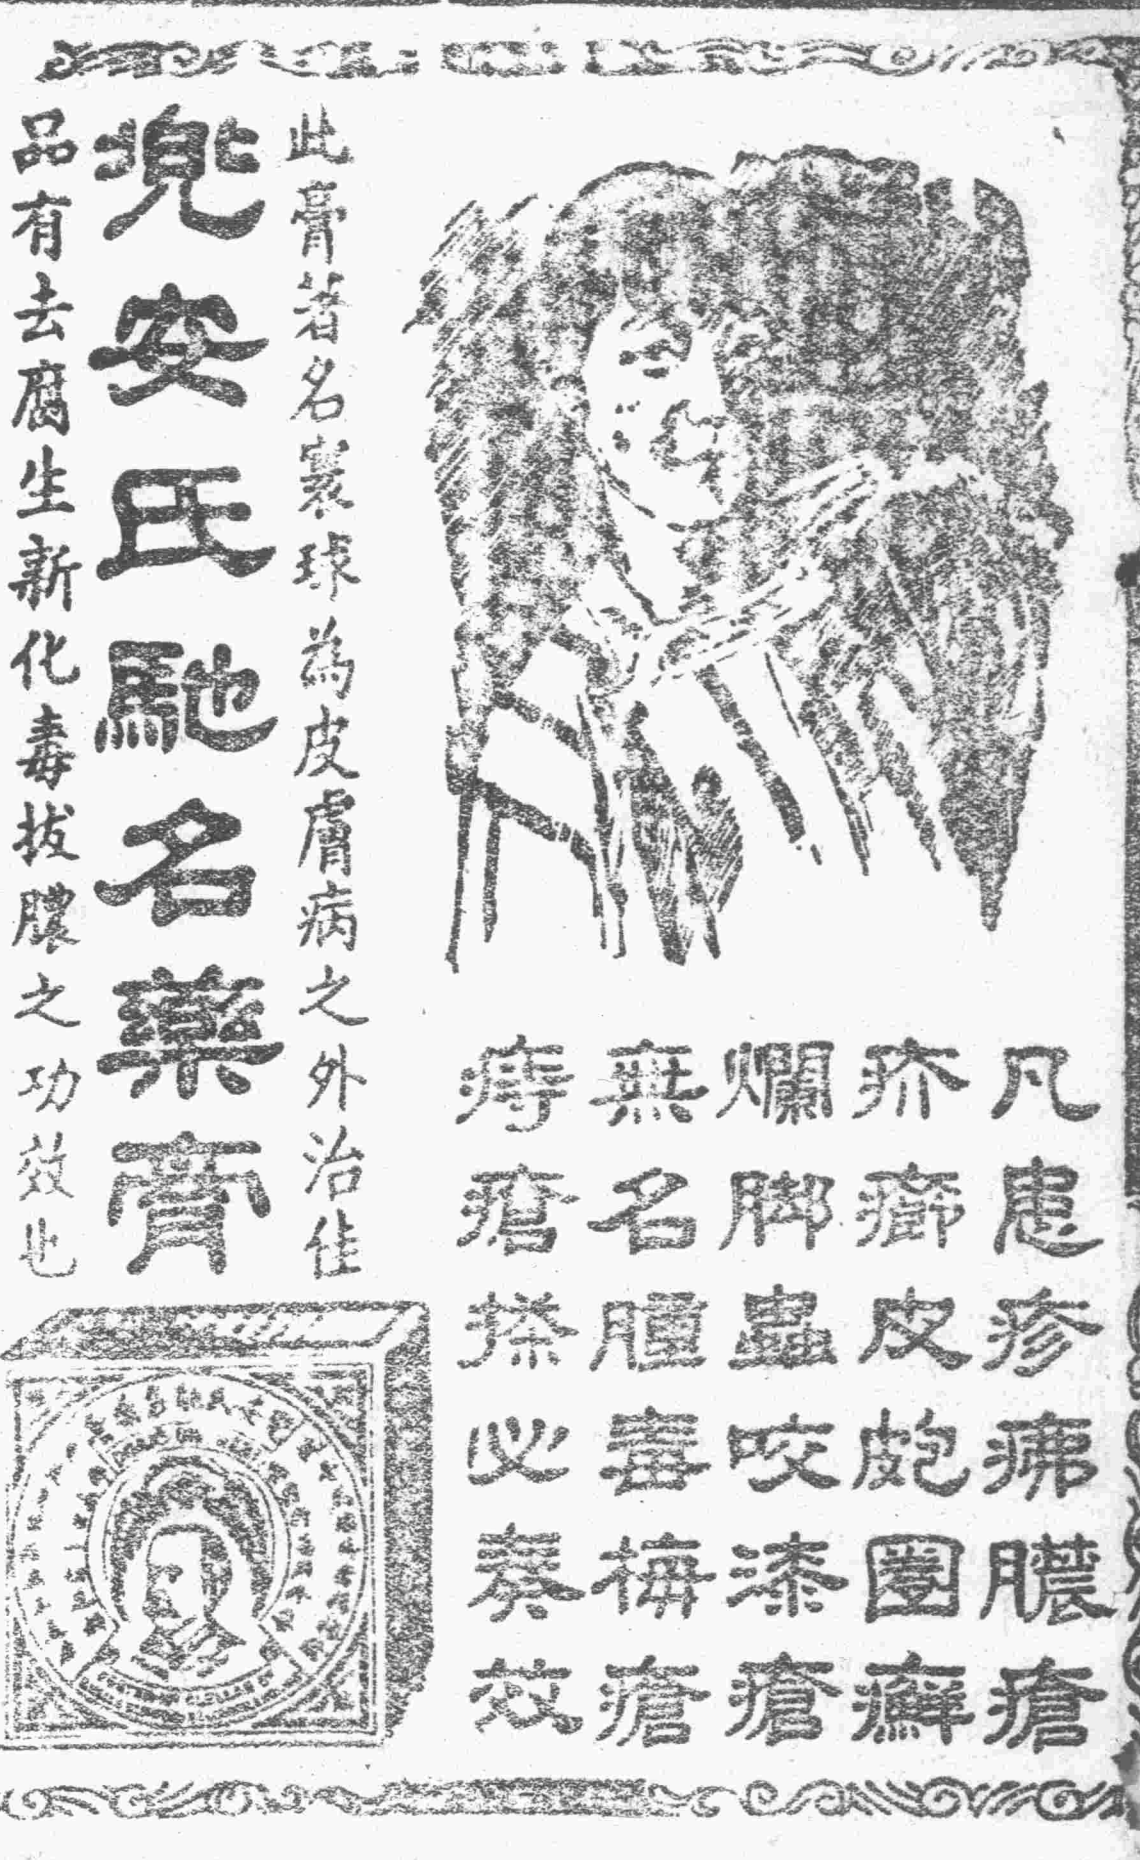 凡患疹疿膿瘡
疥癤皮皰圈癬
爛脚蟲咬漆瘡
無名腫毒梅瘡
痔瘡搽必奏效
此膏著名寰球為皮膚病之外治佳
兜安氏馳名藥膏
品有去腐生新化毒拔膿之功效也